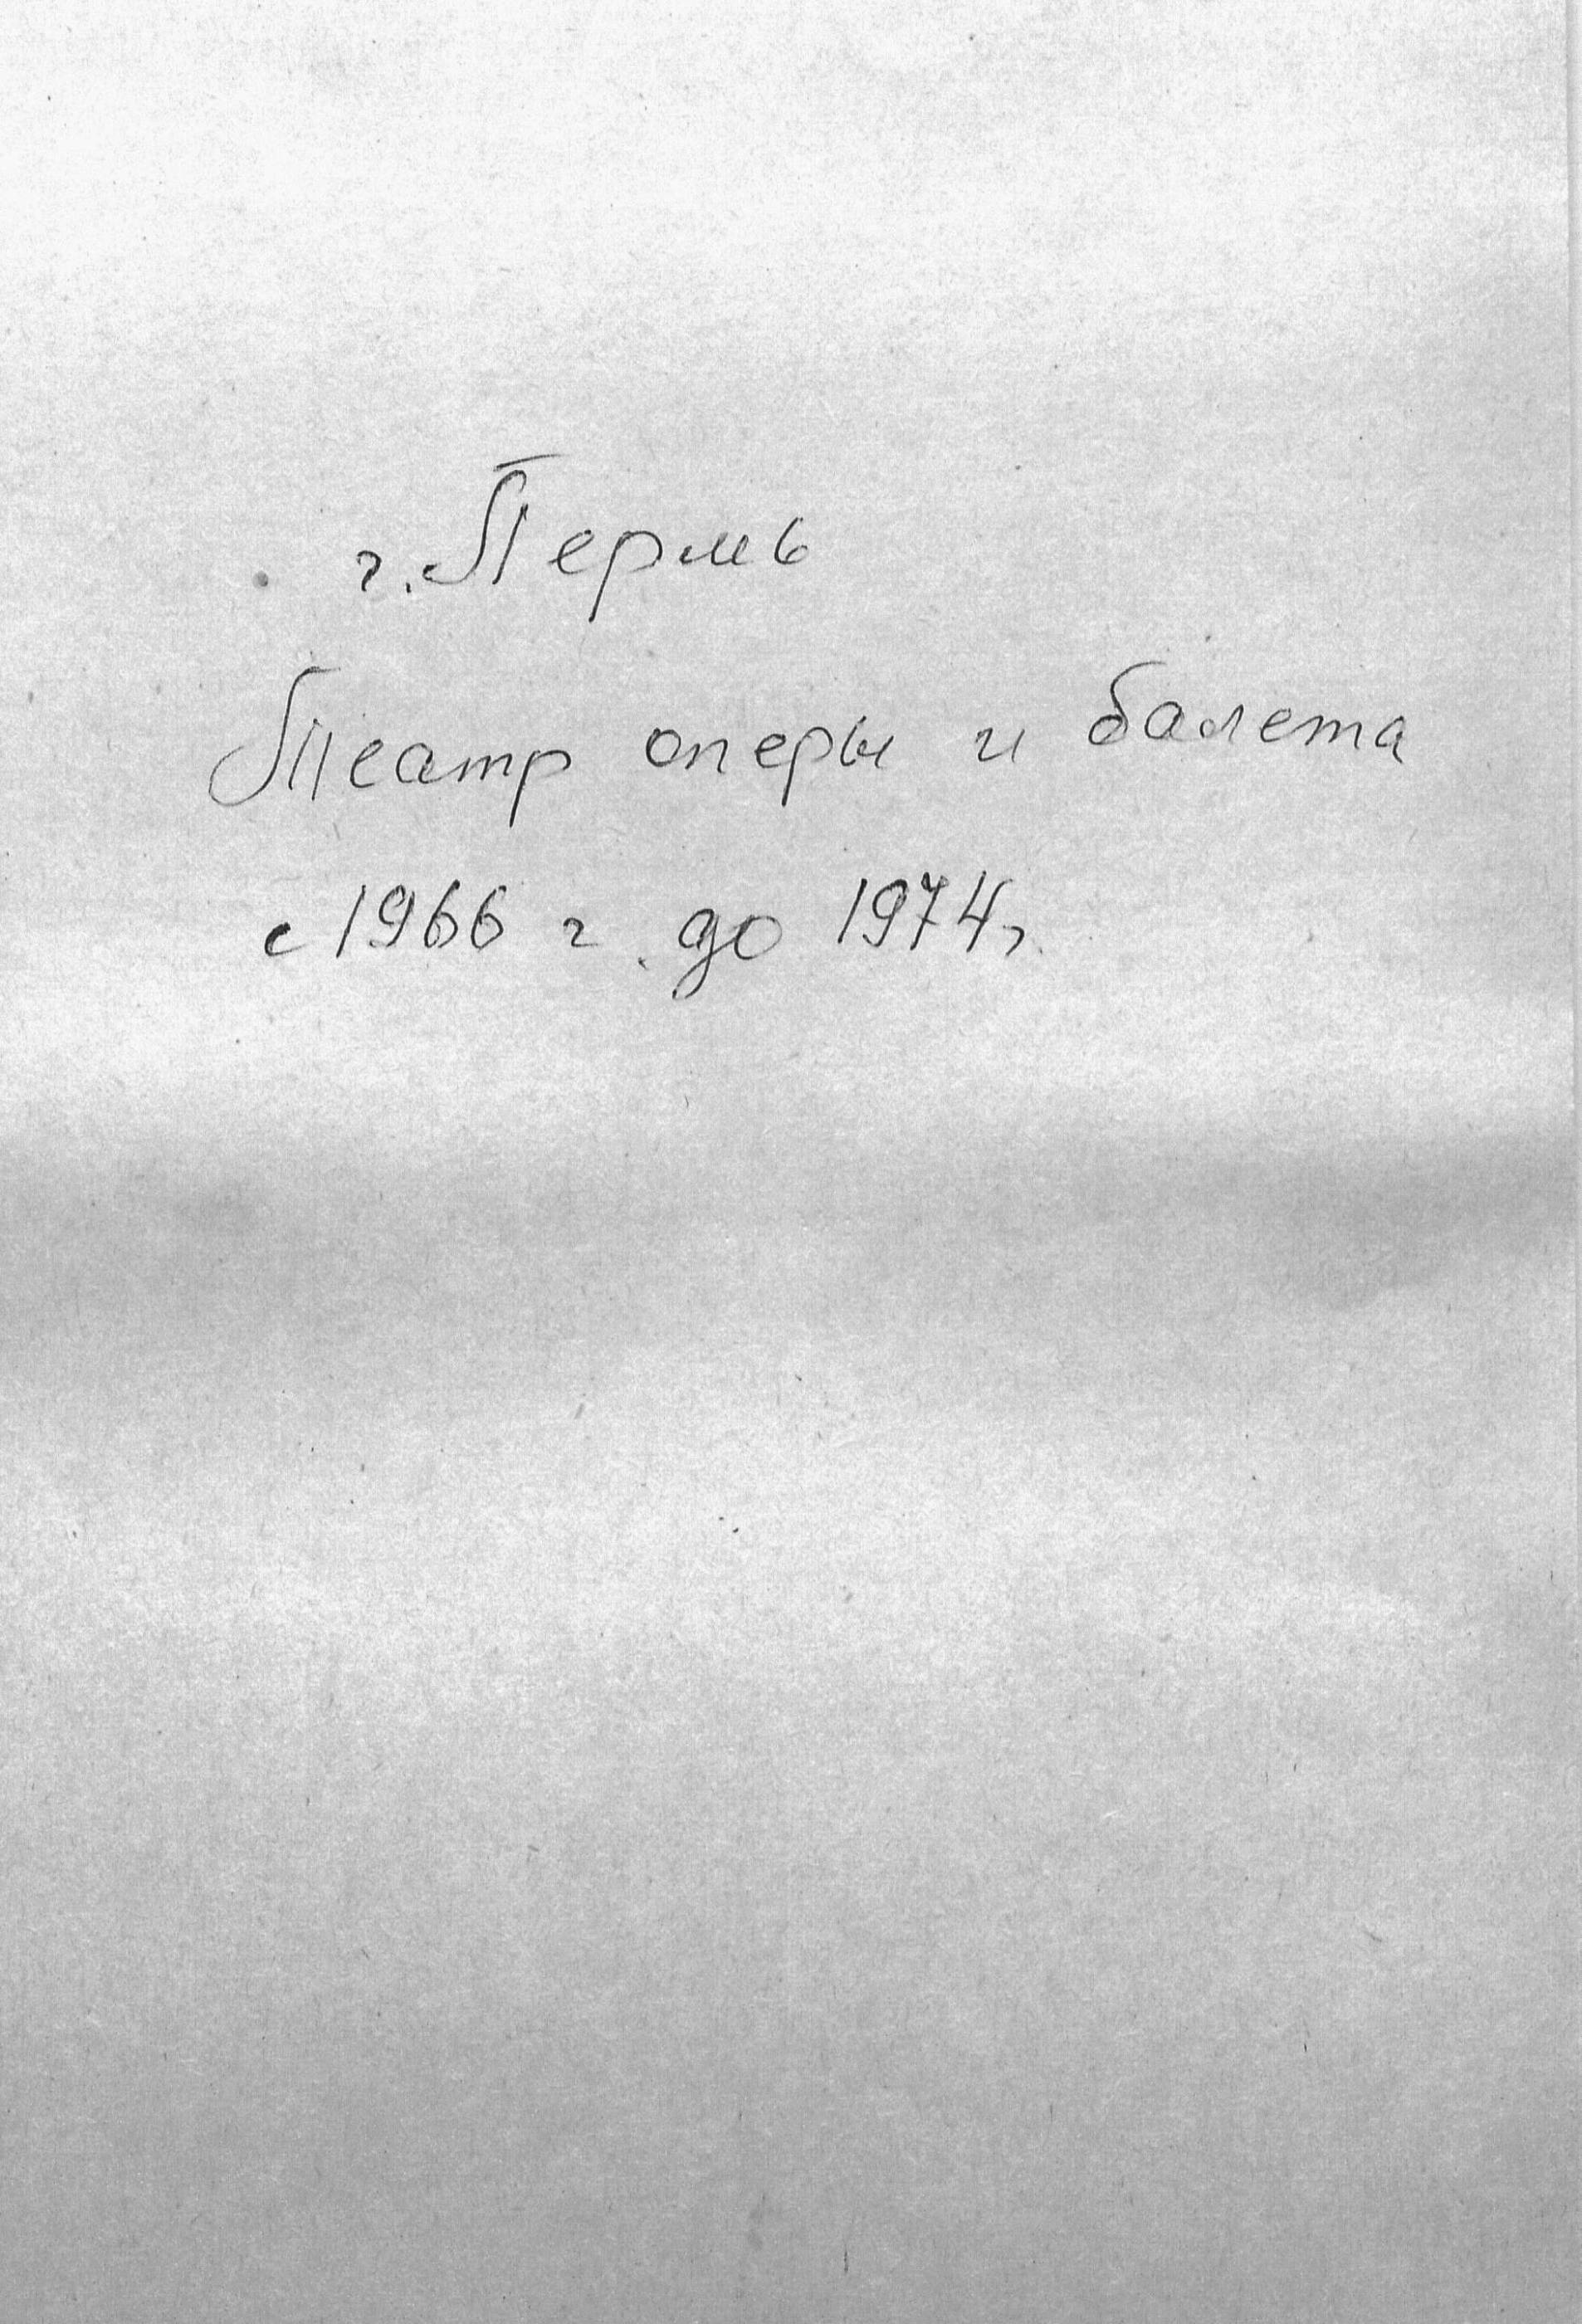 г. Пермь
Театр оперы и балета
с 1966 г. до 1974г.